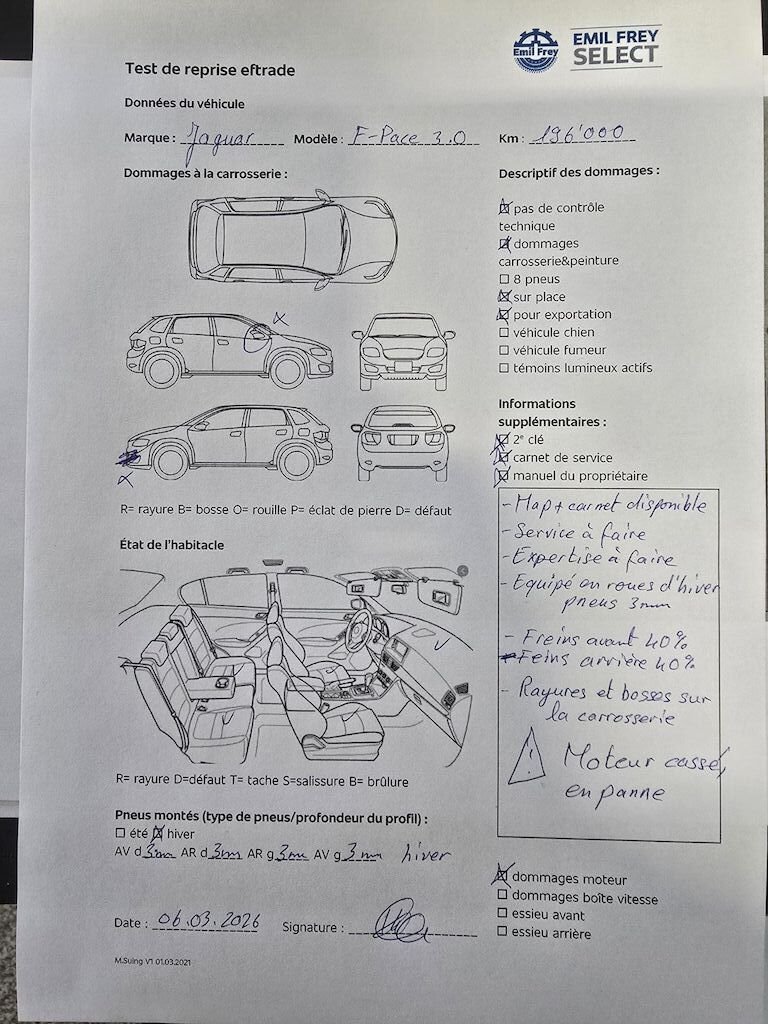 Emil Frey
EMIL FREY
SELECT
Test de reprise eftrade
Données du véhicule
Marque : Jaguar Modèle : F-Pace 3.0 Km : 196'000
Dommages à la carrosserie :
X
X
R= rayure B= bosse O= rouille P= éclat de pierre D= défaut
État de l'habitacle
R= rayure D=défaut T= tache S=salissure B= brûlure
Pneus montés (type de pneus/profondeur du profil) :
☐ été ☒ hiver
AV d 3mm AR d 3mm AR g 3mm AV g 3mm hiver
Date : 06.03.2026 Signature :
M.Suing V1 01.03.2021
Descriptif des dommages :
☒ pas de contrôle
technique
☒ dommages
carrosserie&peinture
☐ 8 pneus
☒ sur place
☒ pour exportation
☐ véhicule chien
☐ véhicule fumeur
☐ témoins lumineux actifs
Informations
supplémentaires :
☒ 2e clé
☒ carnet de service
☒ manuel du propriétaire
- Map + carnet disponible
- Service à faire
- Expertise à faire
- Equipé en roues d'hiver
pneus 3mm
- Freins avant 40%
- Feins arrière 40%
- Rayures et bosses sur
la carrosserie
! Moteur cassé,
en panne
☒ dommages moteur
☐ dommages boîte vitesse
☐ essieu avant
☐ essieu arrière